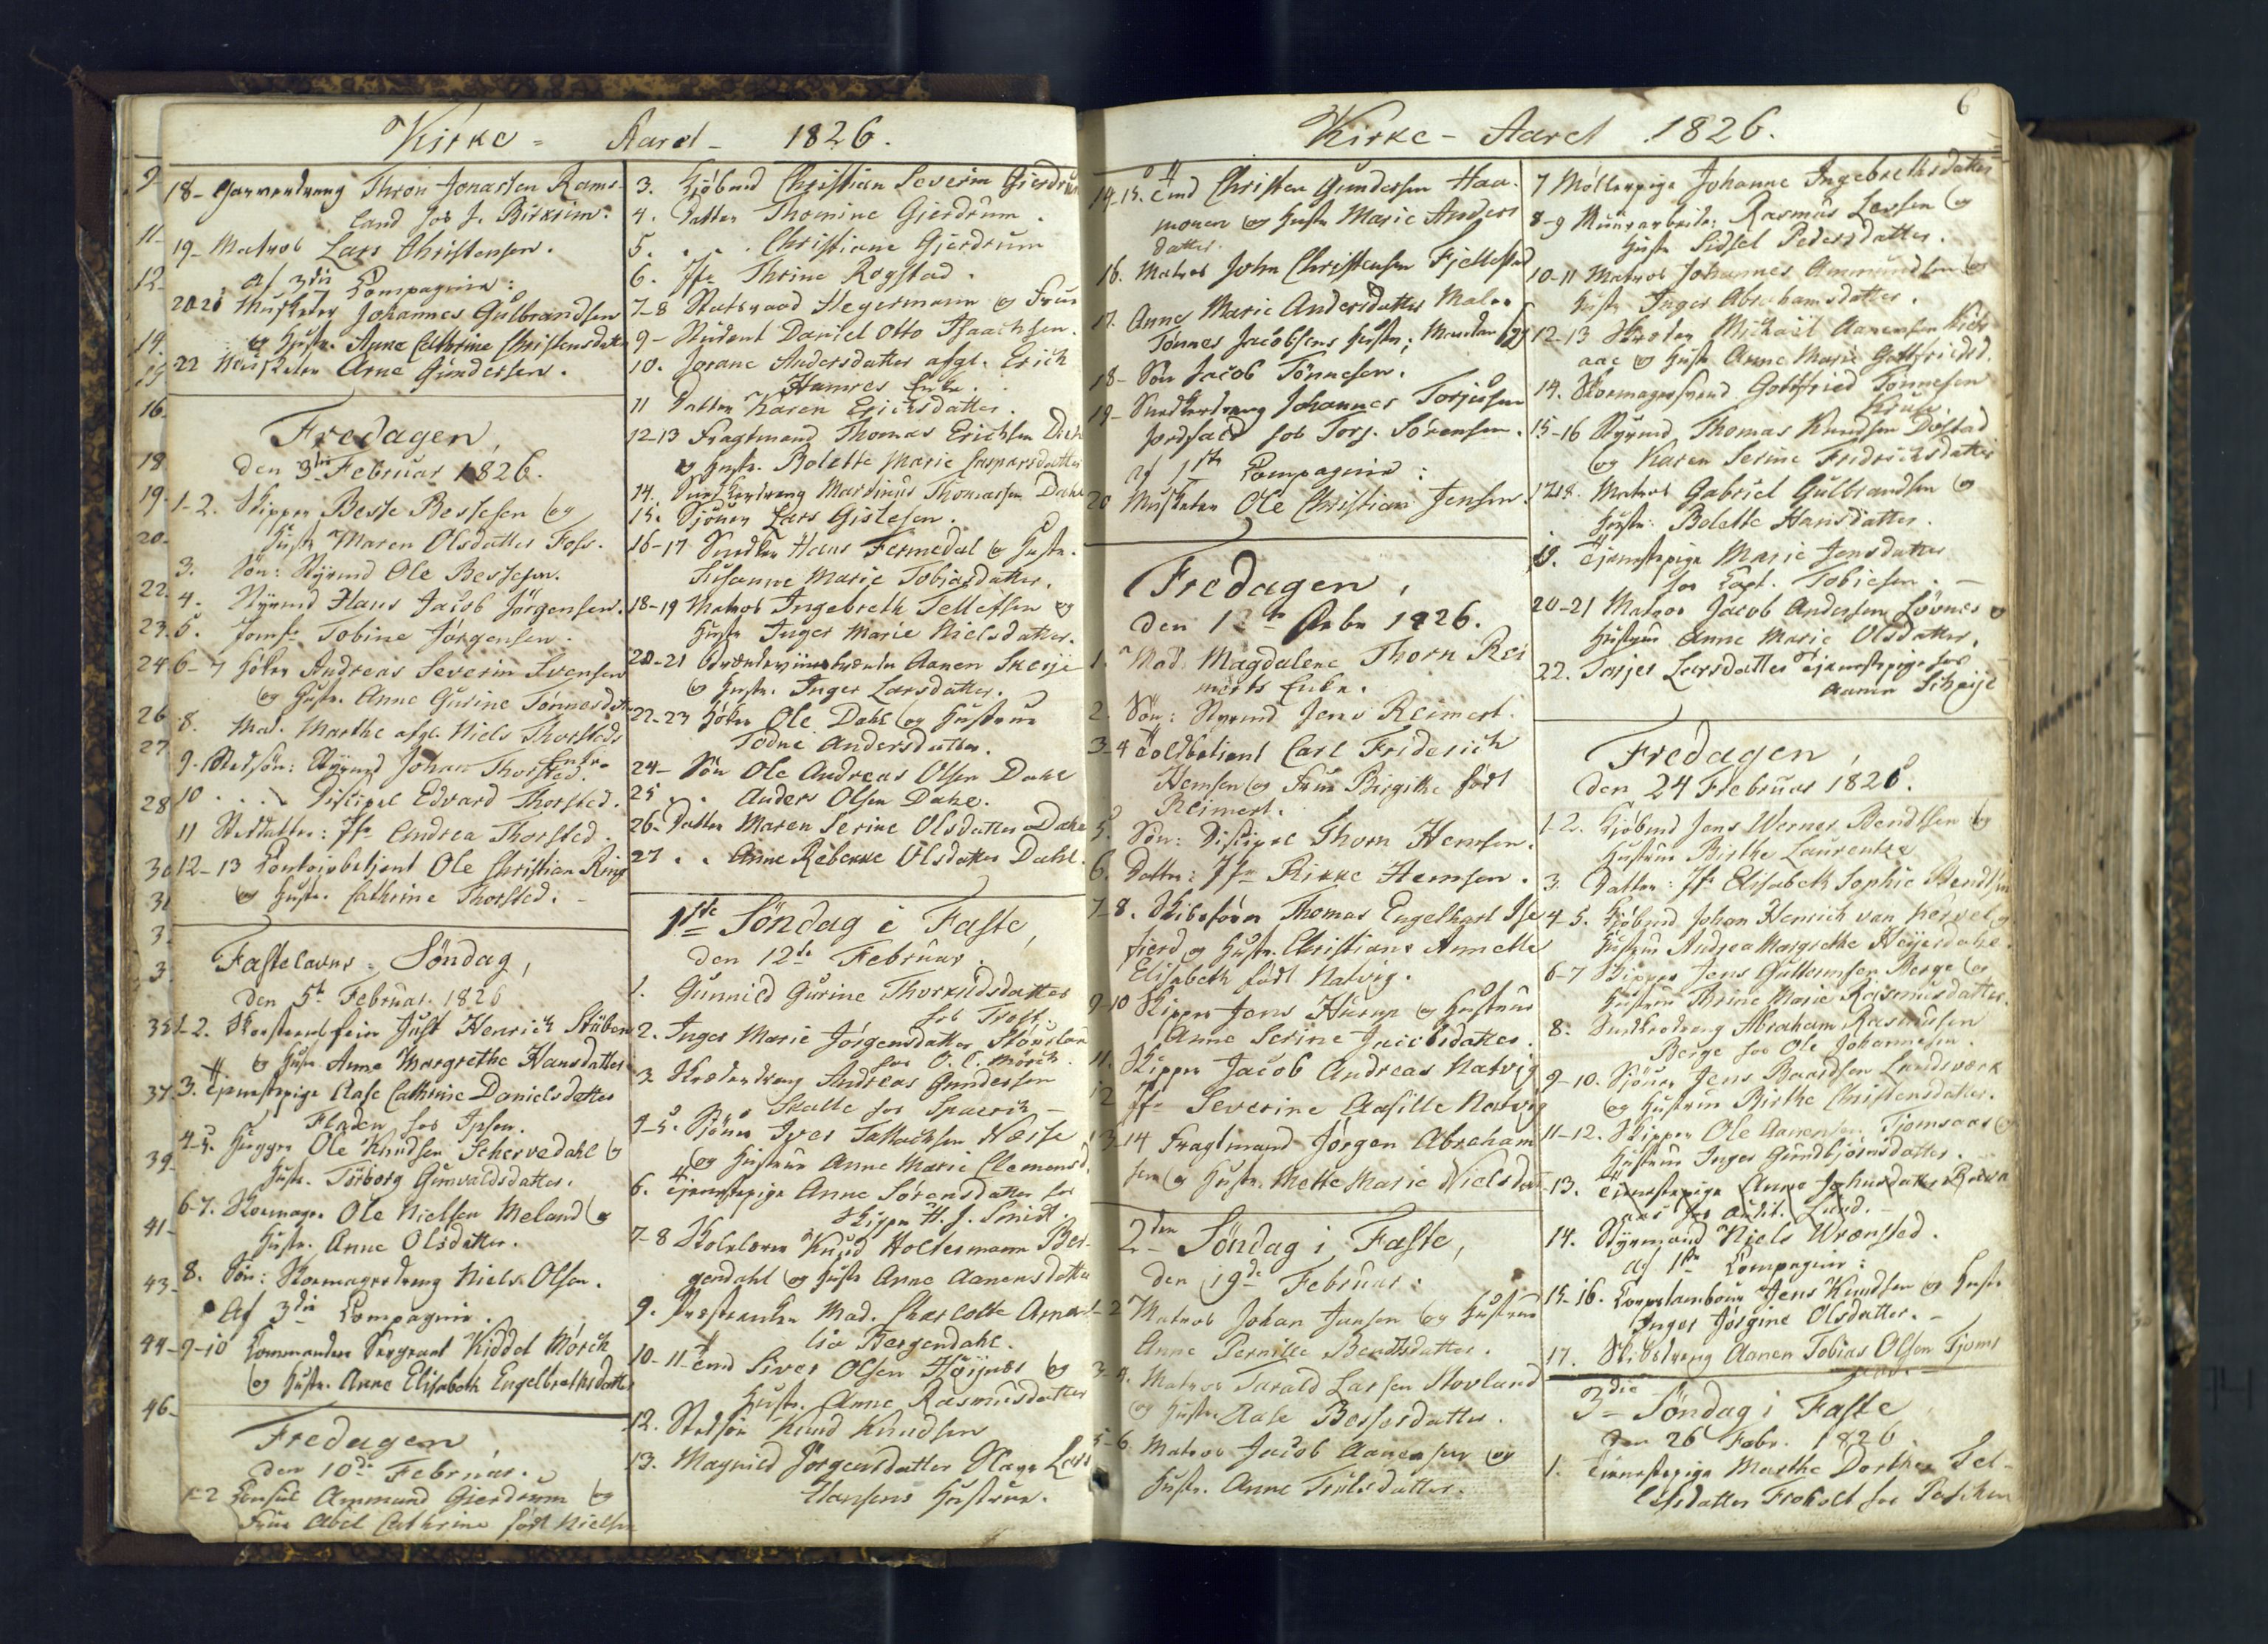 Kirke - Aaret - 1826.
18- Garverdreng Thron Jonassen Rams-
land hos J. Birkrim.
19- Matros Lars Christensen.
af 3die Compagnie:
20-21 Musketer Johannes Gulbrandsen
og Hustr. Anne Cathrine Christensdatter
22 Musketer Arne Gundersen.
Fredagen,
den 3die Februar 1826.
1-2. Skipper Besse Bessesen og
Hustr. Maren Olsdatter Foss.
3. Søn: Styrmd Ole Bessesen.
4. Styrmd Hans Jacob Jørgensen.
5. Jomfr. Tobine Jørgensen.
6-7 Høker Andreas Severin Svensen
og Hustr. Anne Gurine Tønnesdtr
8. Mad. Marthe afgl. Niels Thorsteds
Enke.
9. Stedsøn: Styrmd Johan Thorsted.
10 . . . Discipel Edvard Thorsted.
11 Steddatter: Jfr Andrea Thorsted.
12-13 Contoirbetjent Ole Christian Ring
og Hustr. Cathrine Thorsted. -
Fastelavns Søndag,
den 5te Februar 1826
1-2. Skorsteensfeier Just Henrich Stüben
og Hustr Anne Margrethe Hansdatter
3. Tjenestepige Aase Cathrine Danielsdatter
Fladen hos Ipsen.
4-5. Hugger Ole Knudsen Schervedahl og
Hustr. Torborg Gunvaldsdatter.
6-7. Skomager Ole Nielsen Meland og
Hustr. Anne Olsdatter.
8. Søn: Skomagerdreng Niels Olsen.
Af 3die Compagnie.
9-10 Commandeer Sergeant Kiddel Mörch
og Hustr. Anne Elisabeth Engelbrethsdatter
Fredagen,
den 10de Februar.
1-2 Consul Ammund Gjerdrum og
Frue Abel Cathrine født Nielsen
3. Kjøbmd Christian Severin Gjerdrum
4. Datter Thomine Gjerdrum.
5. . . . Christiane Gjerdrum
6. Jfr Thrine Rogstad.
7-8 Statsraad Hegermann og Frue
9- Student Daniel Otto Isaachsen.
10. Jorane Andersdatter afgl. Erich
Hamres Enke.
11 Datter Karen Erichsdatter.
12-13 Fragtmand Thomas Erichsen Dahl
og Hustr. Bolette Marie Caspersdatter
14. Snedkerdreng Martinus Thomassen Dahl
15. Sjømd Lars Gislesen.
16-17 Snedker Hans Fermedal og Hustr.
Susanne Marie Tobiasdatter.
18-19 Matros Ingebreth Tellefsen og
Hustr Inger Marie Nielsdatter.
20-21 Brændeviinsbrænder Aanen Skeije
og Hustr. Inger Larsdatter.
22-23 Høker Ole Dahl og Hustrue
Todne Andersdatter.
24- Søn Ole Andreas Olsen Dahl
25 . . Anders Olsen Dahl.
26- Datter Maren Serine Olsdatter Dahl
27 . . Anne Rebekke Olsdatter Dahl.
1ste Søndag i Faste,
den 12te Februar.
1. Gunnild Gurine Thorkildsdatter
hos Troft.
2. Inger Marie Jørgensdatter
hos O. C. Mørch.
3. Skrædderdreng Andreas Gundersen
Skalle hos
4-5. Sjømd Iver Tallachsen Næsse
og Hustrue Anne Marie Clemensd.
6. Tjenestepige Anne Sørensdatter hos
Skipper H. J. Smidt.
7-8 Skolelærer Knud Holtermann Ber-
gendahl og Hustr Anne Aanensdatter
9. Præsteenke Mad. Charlotte Ama-
lia Bergendahl.
10-11 Tmd Siver Olsen Høijnes og
Hustr. Anne Rasmusdatter
12. Stedsøn Knud Knudsen
13. Magnild Jørgensdatter Slagr Lars
Hansens Hustrue.
Kirke - Aaret 1826.
6
14-15. Tmd Christen Gundersen Haa-
monen og Hustr Marie Anders
datter.
16. Matros John Christensen Fjellestad
17. Anne Marie Andersdatter Maler
Tønnes Jacobsens Hustr;
18- Søn Jacob Tønnesen.
19- Snedkerdreng Johannes Torjusen
hos Torj. Sørensen.
af 1ste Compagnie:
20 Musketer Ole Christian Jensen.
Fredagen,
den 1 te Febr 1826.
1. Mad. Magdalene Thorn Rei
merts Enke.
2. Søn: Styrmd Jens Reimert.
3-4 Toldbetient Carl Friderich
Hemsen og Frue Birgitte født
Reimert.
5. Søn: Discipel Thorn Hemsen.
6. Datter: Jfr Rikke Hemsen.
7-8. Skibsfører Thomas Engelhart Ise
fierd og Hustr. Christiane Annette
Elisabeth født Natvig.
9-10 Skipper Jens Hurup og Hustrue
Anne Serine Jacobsdatter.
11. Skipper Jacob Andreas Natvig
12 Jfr Severine Aasille Natvig
13-14 Fragtmand Jørgen Abraham
sen og Hustr. Mette Marie Nielsdat
2den Søndag i Faste,
den 19de Februar:
1-2 Matros Johan Jansen og Hustrue
Anne Pernille Bendtsdatter.
3-4. Matros Tarald Larsen Stovland
og Hustr. Aase Bessesdatter.
5-6 Matros Jacob Aanensen og
Hustr. Anne Trulsdatter.
7 Møllerpige Johanne Ingebrethsdatter
8-9 Muurarbeid. Rasmus Larsen og
Hustr Sidsel Pedersdatter.
10-11 Matros Johannes Ammundsen og
Hustr Inger Abrahamsdatter.
12-13 Skræder Michael Aanensen Kirk-
aae og Hustr Anne Marie Gottfriedsd.
14. Skomagersvend Gottfried Tønnesen
15-16 Styrmd Thomas Knudsen Dostad
og Karen Serine Fridrichsdatter
17-18. Matros Gabriel Gulbrandsen og
Hustr: Bolette Hansdatter.
19. Tjenestepige Marie Jensdatter
hos Capt. Tobiesen. -
20-21 Matros Jacob Andersen Løvnes og
Hustrue Anne Marie Olsdatter.
22. Torjer Larsdatter Tjenestepige hos
Aanen Scheije
Fredagen,
den 24 Februar 1826.
1-2. Kjøbmd Jens Werner Bendtsen og
Hustrue Birthe Laurentze
3. Datter: Jfr Elisabeth Sophie Bendtsen
4-5. Kjøbmd Johan Henrich van Kervel og
Hustrue Andrea Margrethe Heyerdahl.
6-7 Skipper Jens Guttormsen Berge og
Hustrue Thrine Marie Rasmusdatter.
8. Snedkerdreng Abraham Rasmusen
Berge hos Ole Johannesen.
9-10. Sjømd Jens Baardsen Landsverk
og Hustrue Birthe Christensdatter.
11-12. Skipper Ole Aanensen Tjomsaas og
Hustrue Inger Gundbjørnsdatter.
13. Tjenestepige Anne Johnsdatter
aas hos Audit. Lund. -
14. Styrmand Niels Wrensted.
af 1ste Compagnie:
15-16. Corpstambour Jens Knudsen og Hustr
Inger Jørgine Olsdatter. -
17. Skibsdreng Aanen Tobias Olsen Tjoms
aas. -
3die Søndag i Faste
den 26 Febr. 1826
1. Tjenestepige Marthe Dorthea Tel-
lefsdatter Froholt hos